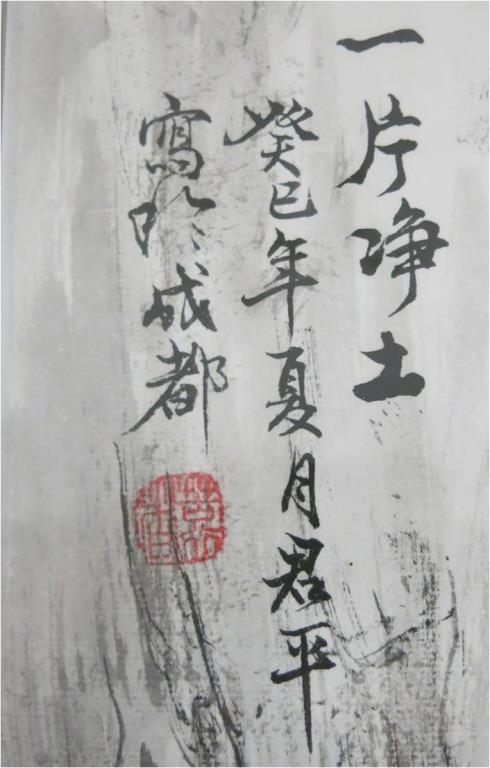 一片净土
癸巳年夏月君平
寫於成都